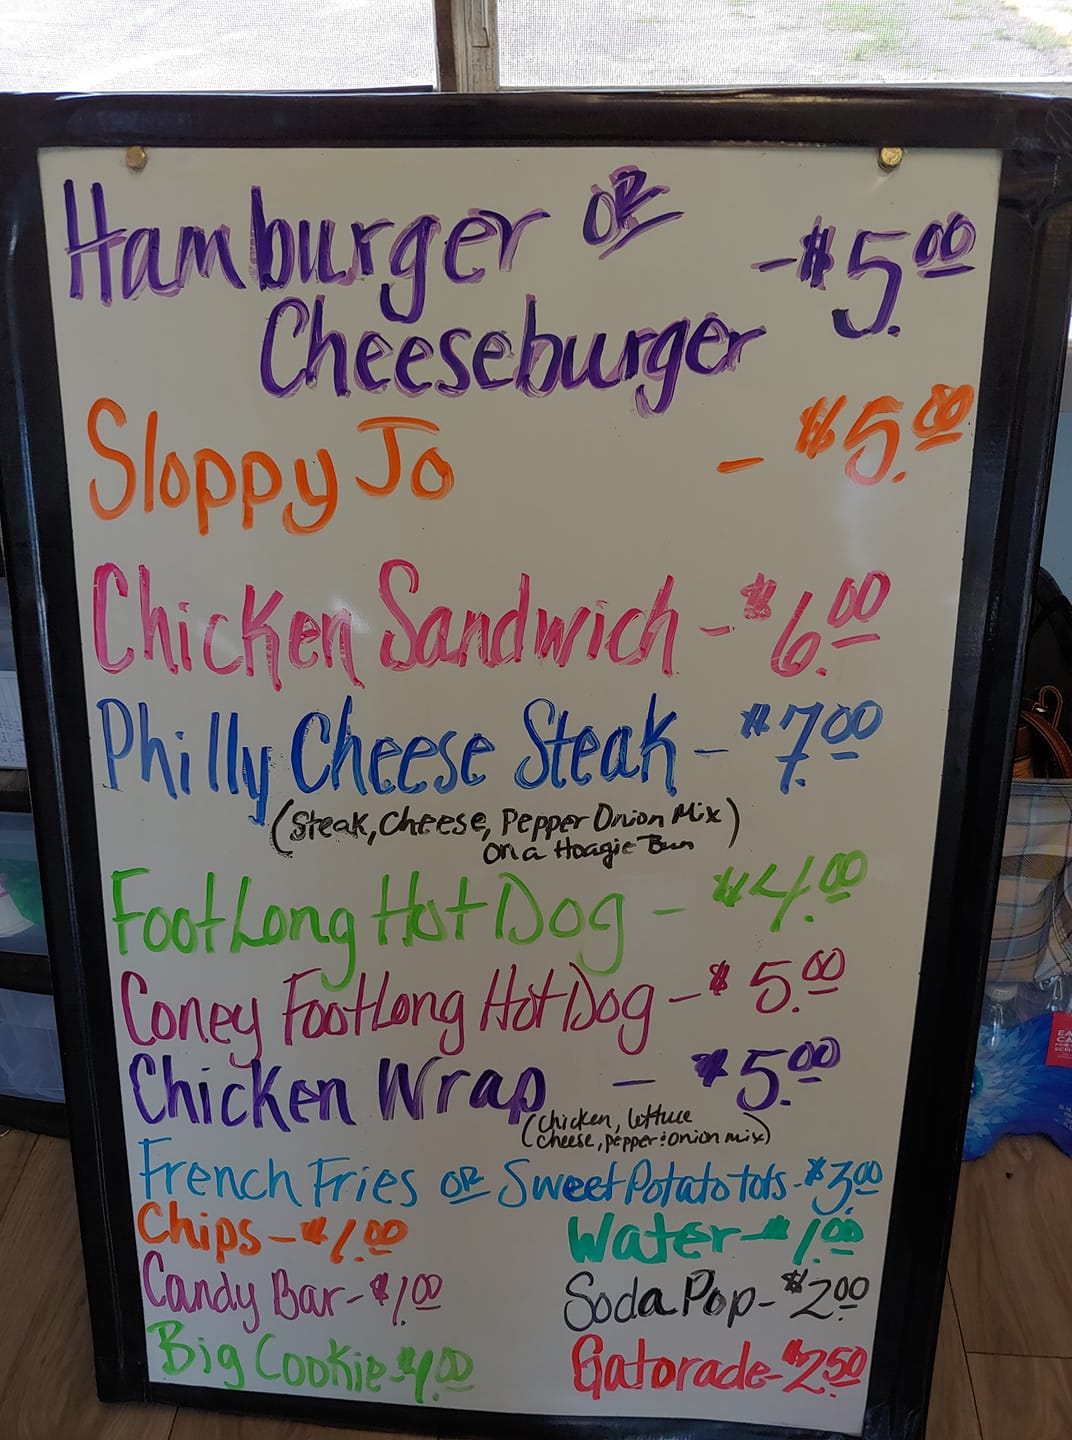 Hamburger OR - $5.00
Cheeseburger
Sloppy Jo - $5.00
Chicken Sandwich - $6.00
Philly Cheese Steak - $7.00
(Steak, Cheese, Pepper Onion Mix)
on a Hoagie Bun
FootLong Hot Dog - $4.00
Coney FootLong Hot Dog - $5.00
Chicken Wrap - $5.00
(chicken, lettuce
cheese, pepper & onion mix)
French Fries OR Sweet Potato Tots - $3.00
Chips - $1.00
Water - $1.00
Candy Bar - $1.00
Soda Pop - $2.00
Big Cookie - $4.00
Gatorade - $2.50